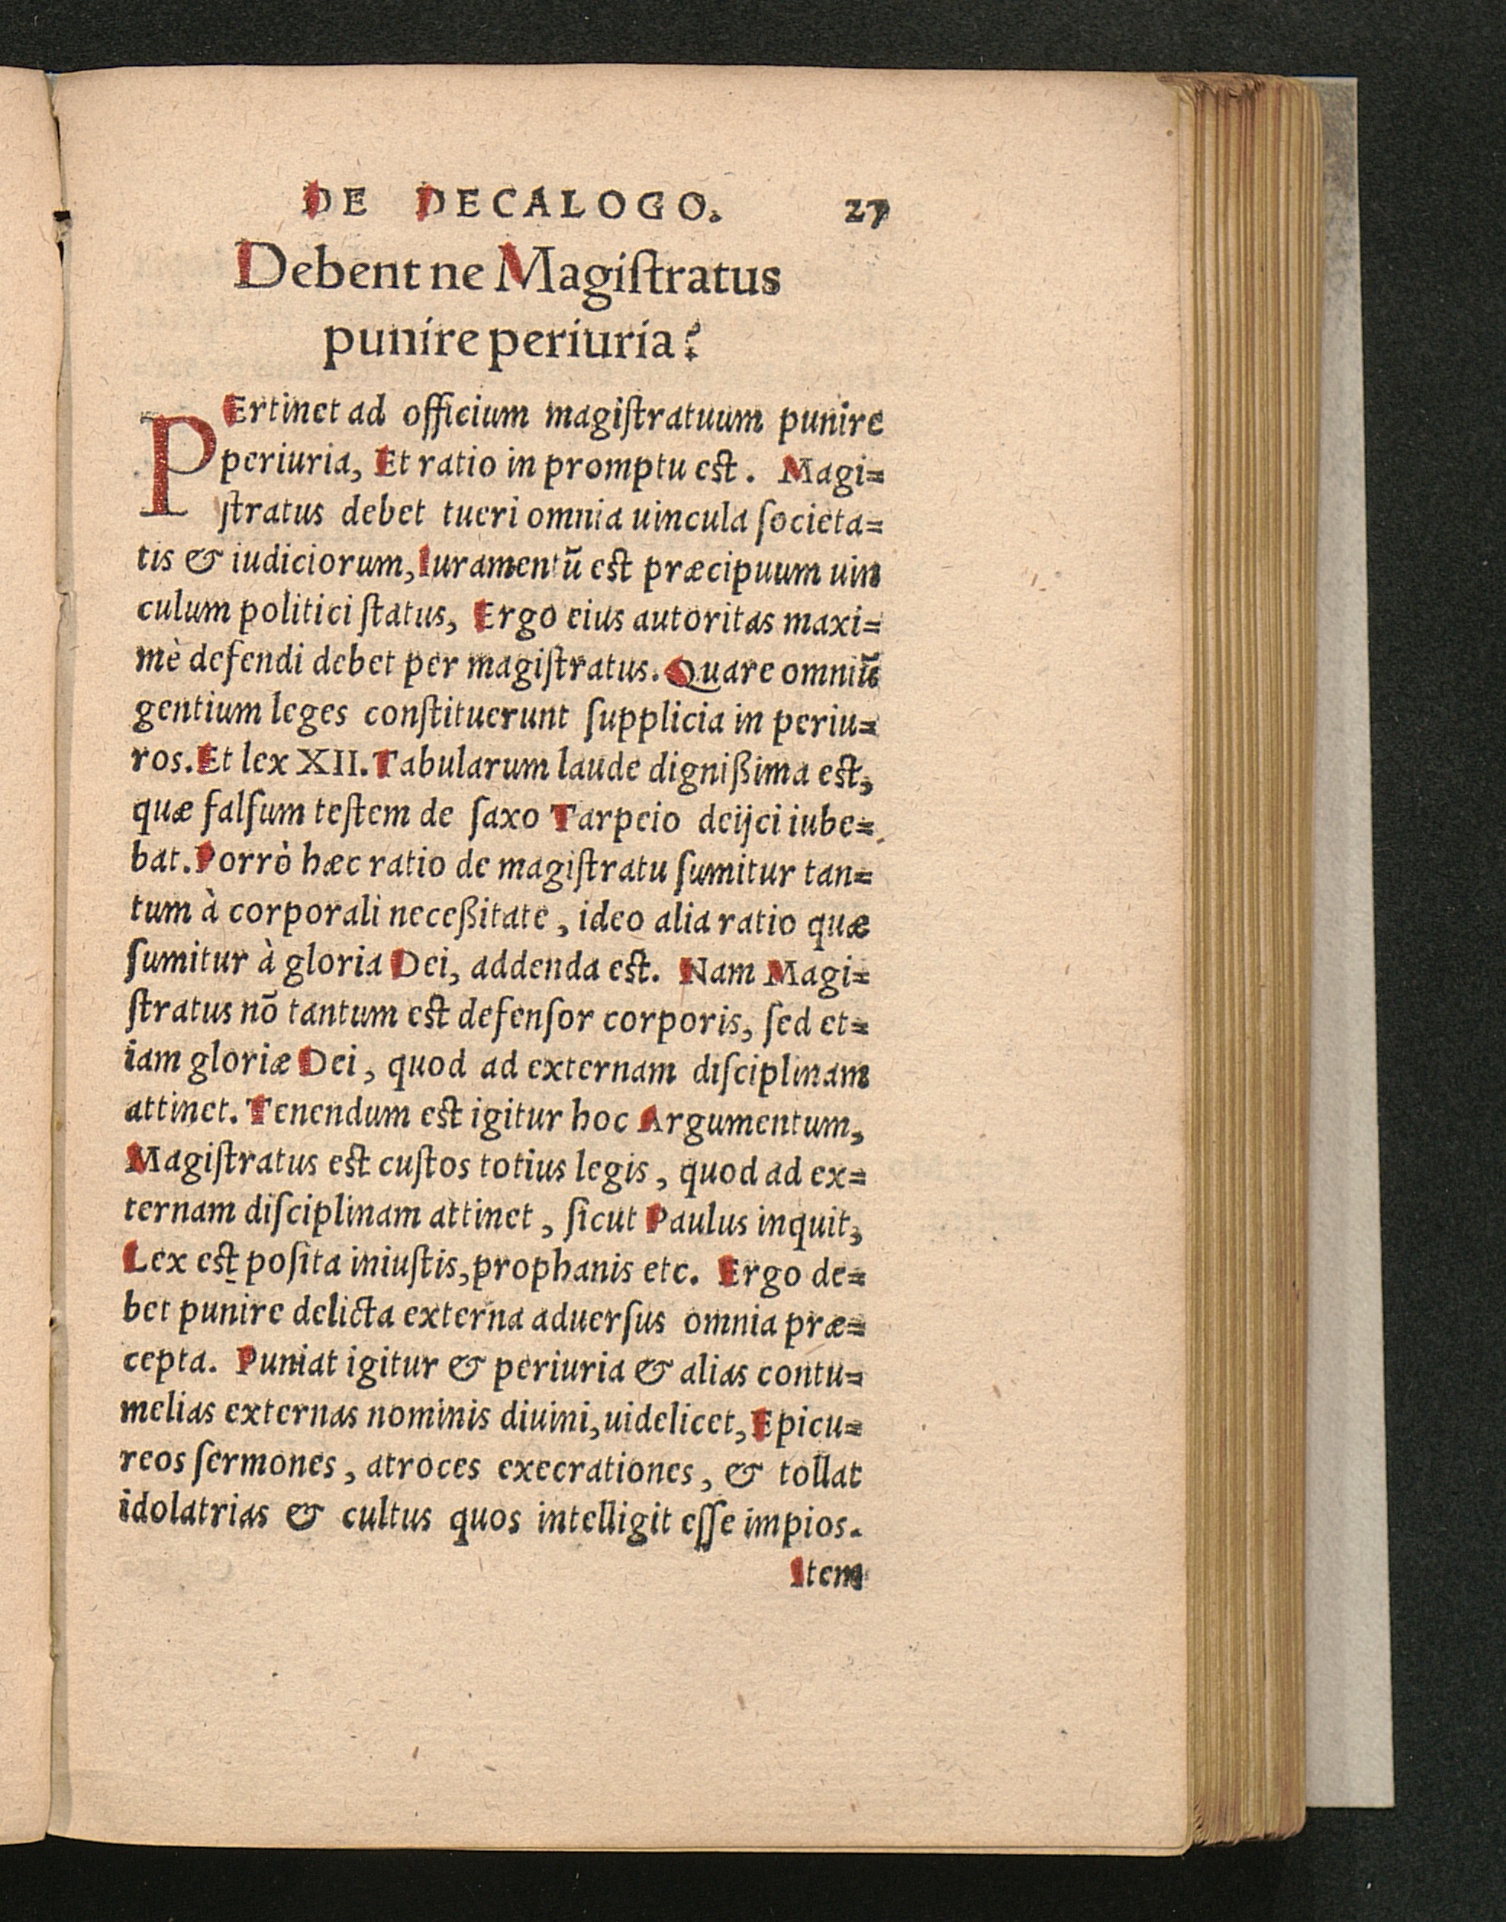 DE DECALOGO. 27
Debent ne Magiſtratus
punire periuria?
PErtinet ad officium magiſtratuum punire
periuria, Et ratio in promptu eſt. Magi=
ſtratus debet tueri omnia uincula ſocieta=
tis & iudiciorum, Iuramentū eſt præcipuum uin
culum politici ſtatus, Ergo eius autoritas maxi=
mè defendi debet per magiſtratus. Quare omniū
gentium leges conſtituerunt ſupplicia in periu=
ros. Et lex XII. Tabularum laude dignißima eſt,
quæ falſum teſtem de ſaxo Tarpeio deijci iube=
bat. Porrò hæc ratio de magiſtratu ſumitur tan=
tum à corporali neceßitate, ideo alia ratio quæ
ſumitur à gloria Dei, addenda eſt. Nam Magi=
ſtratus nō tantum eſt defenſor corporis, ſed et=
iam gloriæ Dei, quod ad externam diſciplinam
attinet. Tenendum eſt igitur hoc Argumentum,
Magiſtratus eſt cuſtos totius legis, quod ad ex=
ternam diſciplinam attinet, ſicut Paulus inquit,
Lex eſt poſita iniuſtis, prophanis etc. Ergo de=
bet punire delicta externa aduerſus omnia præ=
cepta. Puniat igitur & periuria & alias contu=
melias externas nominis diuini, uidelicet, Epicu=
reos ſermones, atroces execrationes, & tollat
idolatrias & cultus quos intelligit eſſe impios.
Item